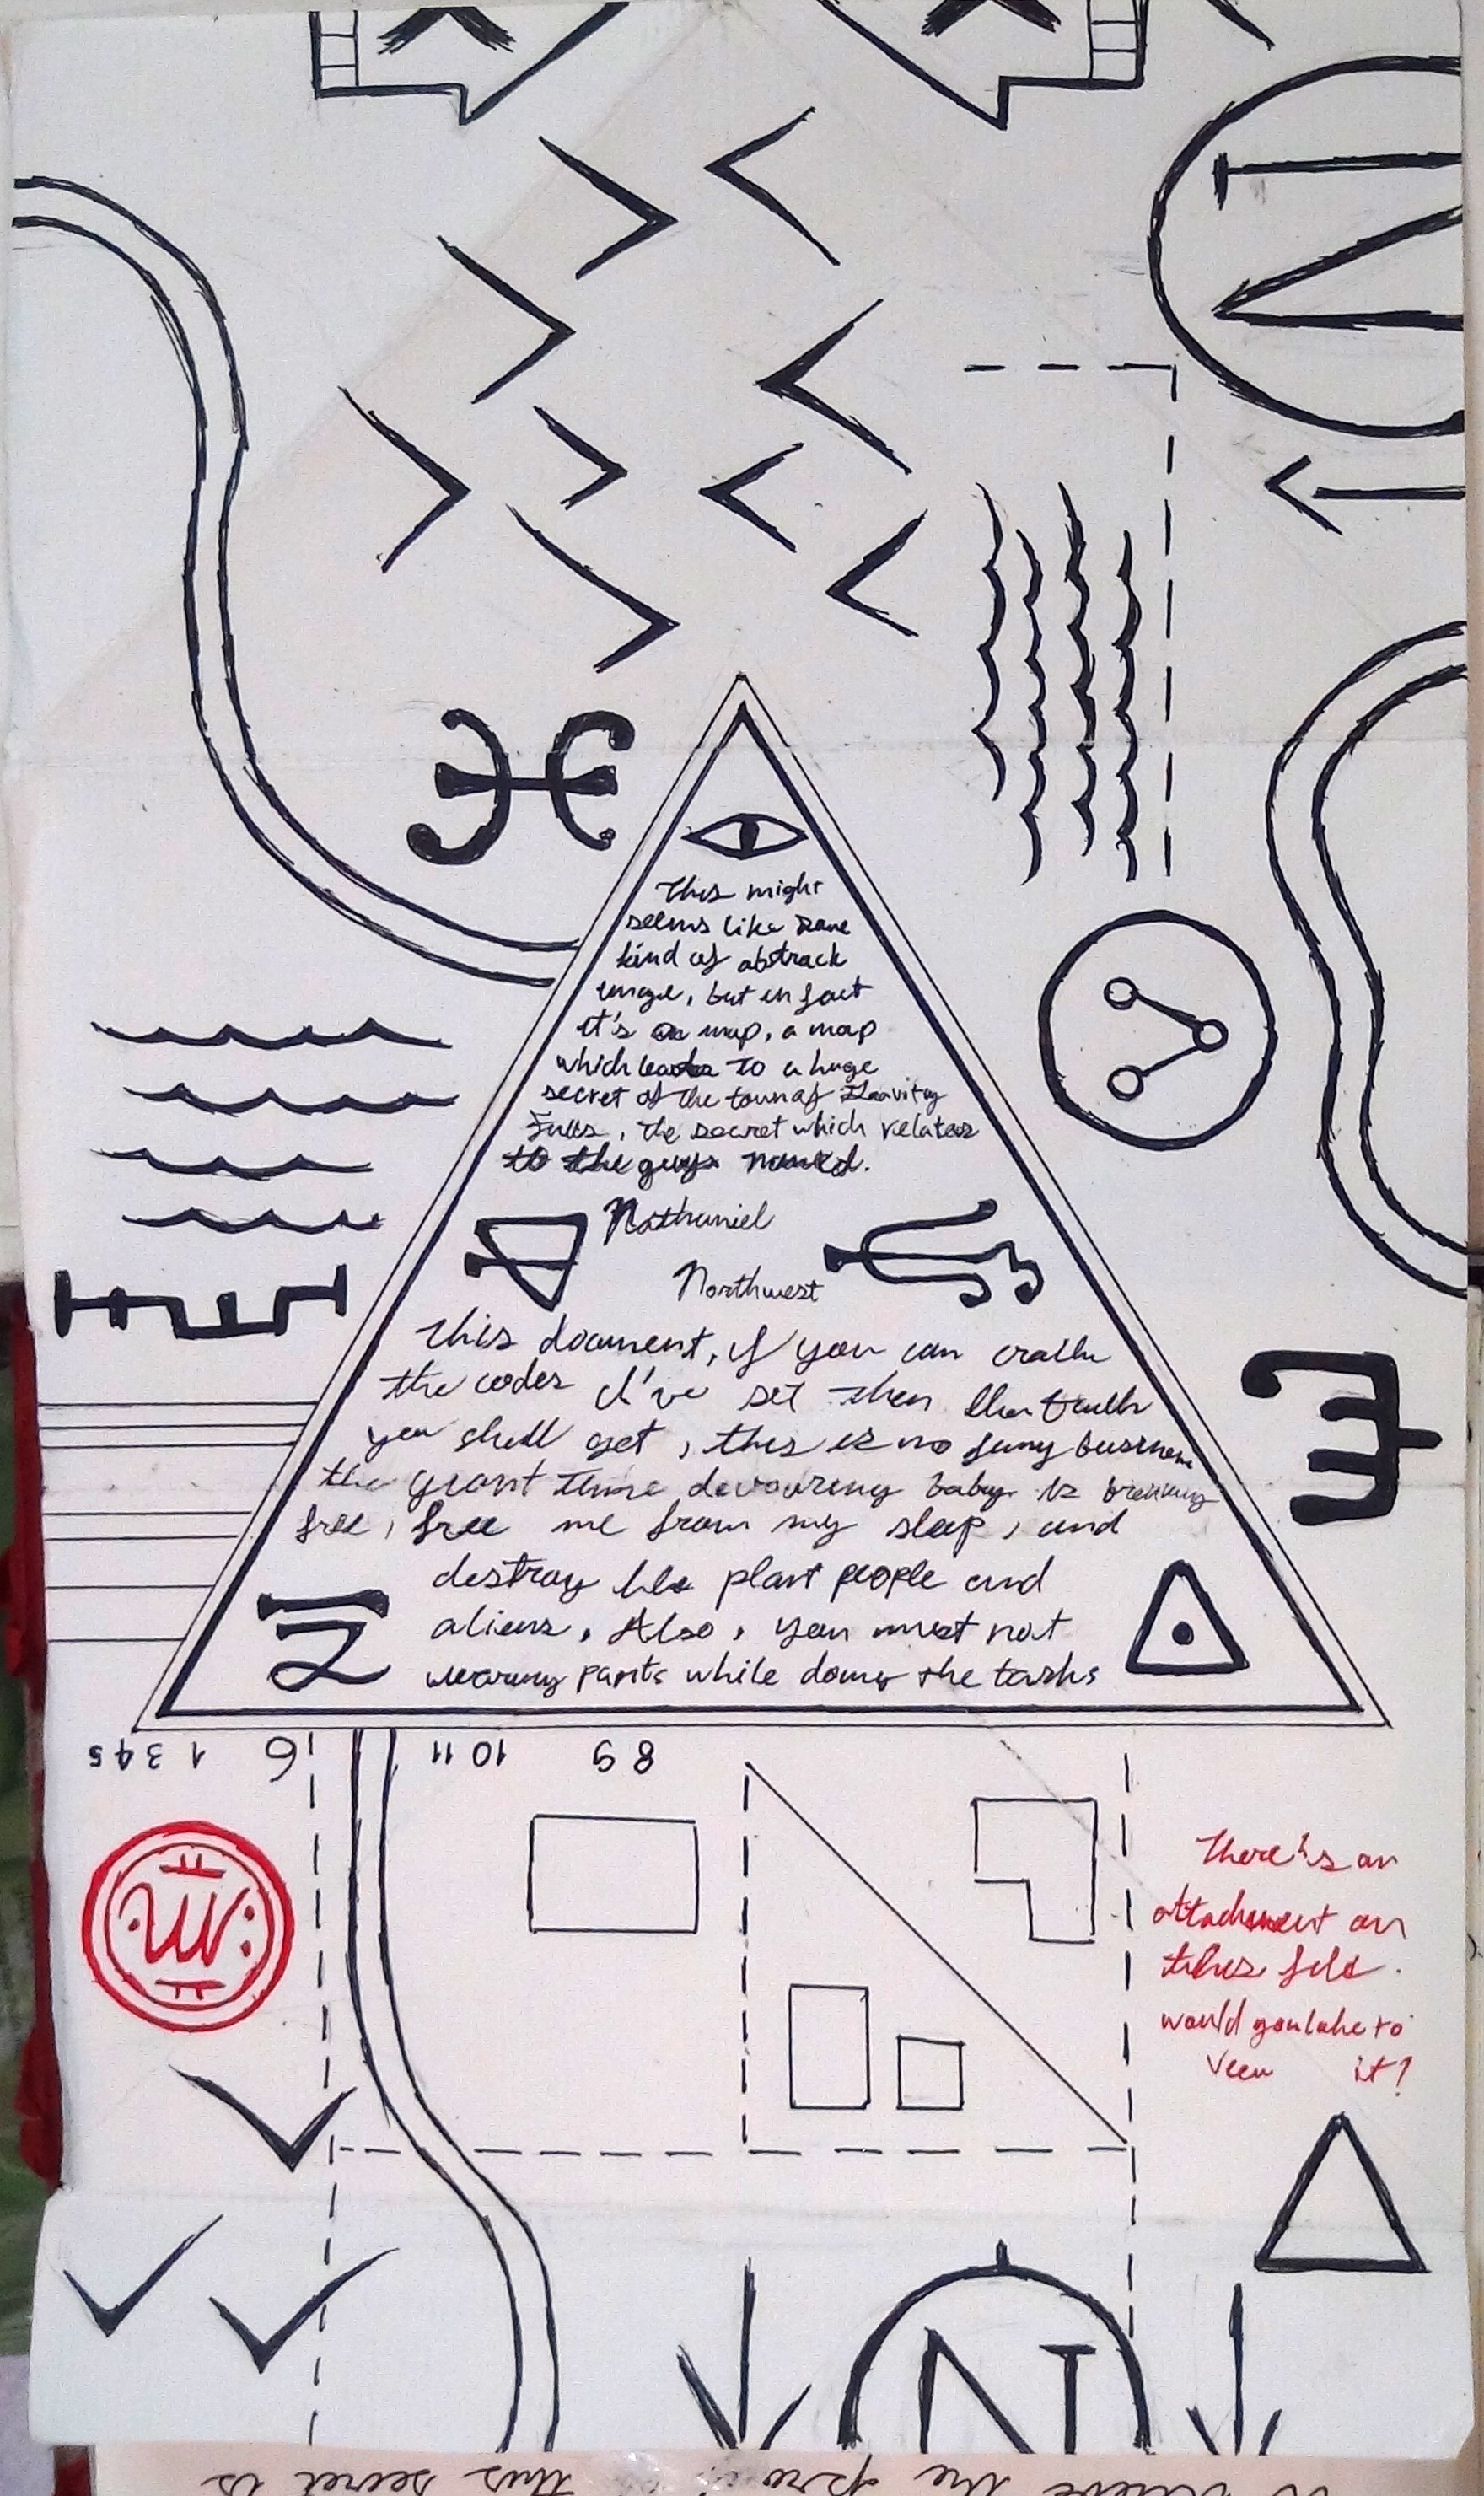 This might
seems like some
kind of abstrack
image, but in fact
it's a map, a map
which leads to a huge
secret of the town of Gravity
Falls, the secret which relates
to the guys named.
Nathaniel
Northwest
This document, if you can crack
the codes I've set then the truth
you shall get, this is no funny business
the giant time devouring baby is breaking
free, free me from my sleep, and
destroy the plant people and
aliens, Also, you must not
wearing pants while doing the tasks
1 3 4 5
6
10 11
8 9
There's an
attachment on
this fold.
would you like to
view it?
this secret is